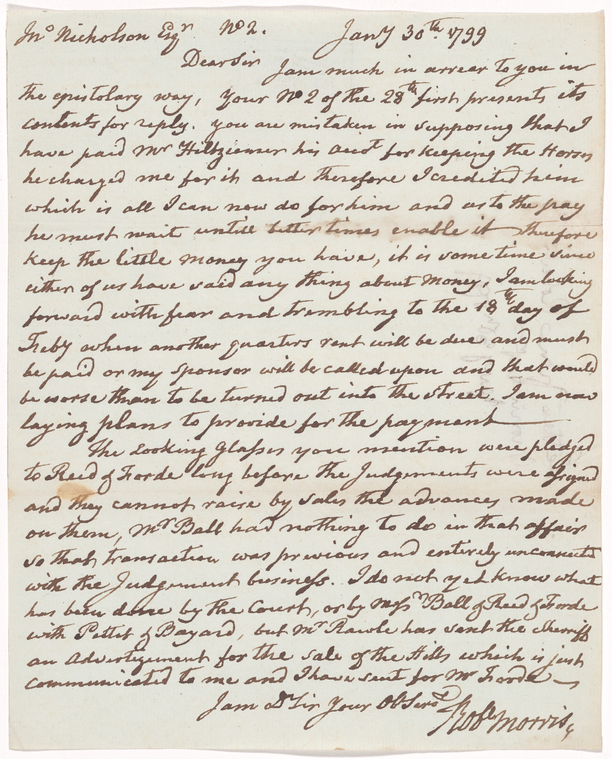 Jnº Nicholson Esqr Nº 2. Jany 30th 1799
Dear Sir I am much in arrear to you in
the epistolary way, Your Nº 2 of the 28th first presents its
contents for reply. you are mistaken in supposing that I
have paid Mr Hiltziemer his acct for keeping the Horses
he charged me for it and therefore I credited him
which is all I can now do for him and as to the pay
he must wait untill better times enable it therefore
keep the little money you have, it is some time since
either of us have said any thing about money, I am looking
forward with fear and trembling to the 18th day of
Feby when another quarters rent will be due and must
be paid or my sponsor will be called upon and that would
be worse than to be turned out into the street. I am now
laying plans to provide for the payment
The Looking Glasses you mention were pledged
to Reed & Forde long before the Judgements were assigned
and they cannot raise by sales the advances made
on them, Mr Ball had nothing to do in that affair
so that transaction was previous and entirely unconnected
with the Judgement business. I do not yet know what
has been done by the Court, or by Messrs Ball & Reed & Forde
with Pettit & Bayard, but Mr Rawle has sent the Sherriff
an advertizement for the sale of the Hills which is just
communicated to me and I have sent for Mr Forde
I am Dr Sir Your Obt Servt
Robt Morris